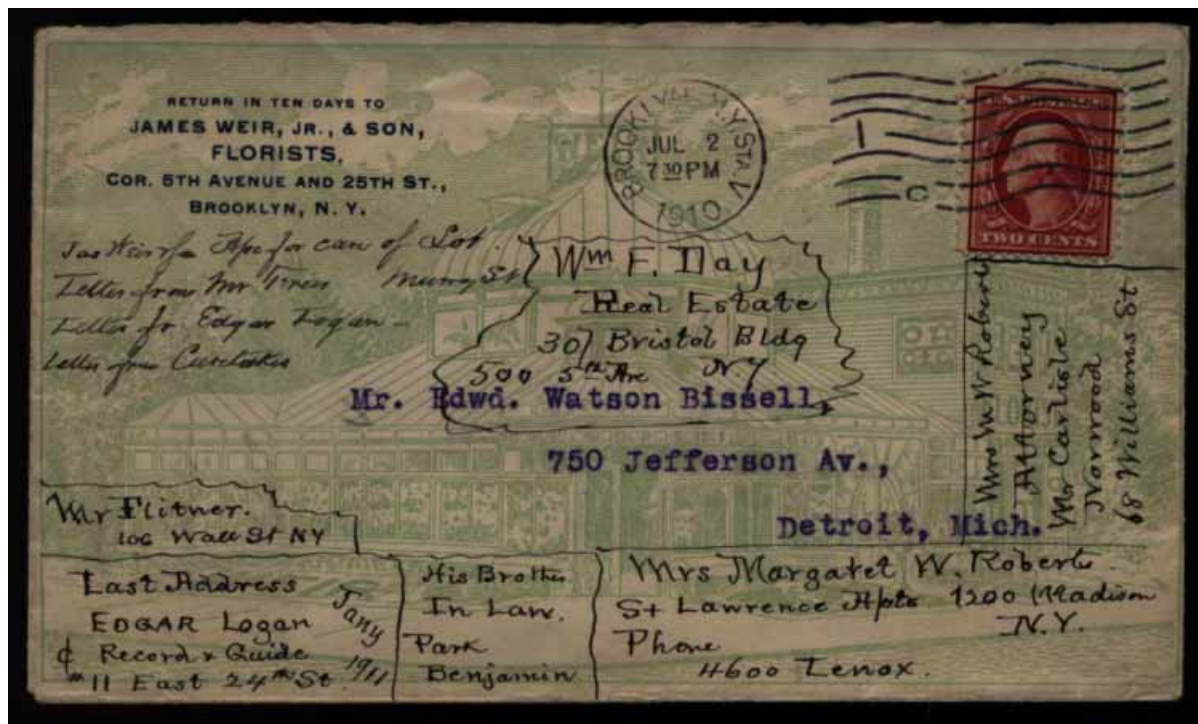 RETURN IN TEN DAYS TO
JAMES WEIR, JR., & SON,
FLORISTS,
COR. 5TH AVENUE AND 25TH ST.,
BROOKLYN, N. Y.
BROOKLYN, N.Y. STA. V
JUL 2
7 30 PM
1910
C
TWO CENTS
for can of Lot.
Letter from Mr
Letter fr Edgar Logan
Letter from
Wm F. Day
Real Estate
307 Bristol Bldg
500 5th Ave NY
Mr. Edwd. Watson Bissell,
750 Jefferson Av.,
Detroit, Mich.
Mrs M W Roberts
Attorney
Mr Carlisle
Norwood
68 Williams St
Mr Flitner.
106 Wall St NY
Last Address
EDGAR Logan
Record & Guide
11 East 24th St
Jany
1911
His Brother
In Law.
Park
Benjamin
Mrs Margaret W. Roberts
St Lawrence Apts 1200 Madison
N.Y.
Phone
4600 Lenox.